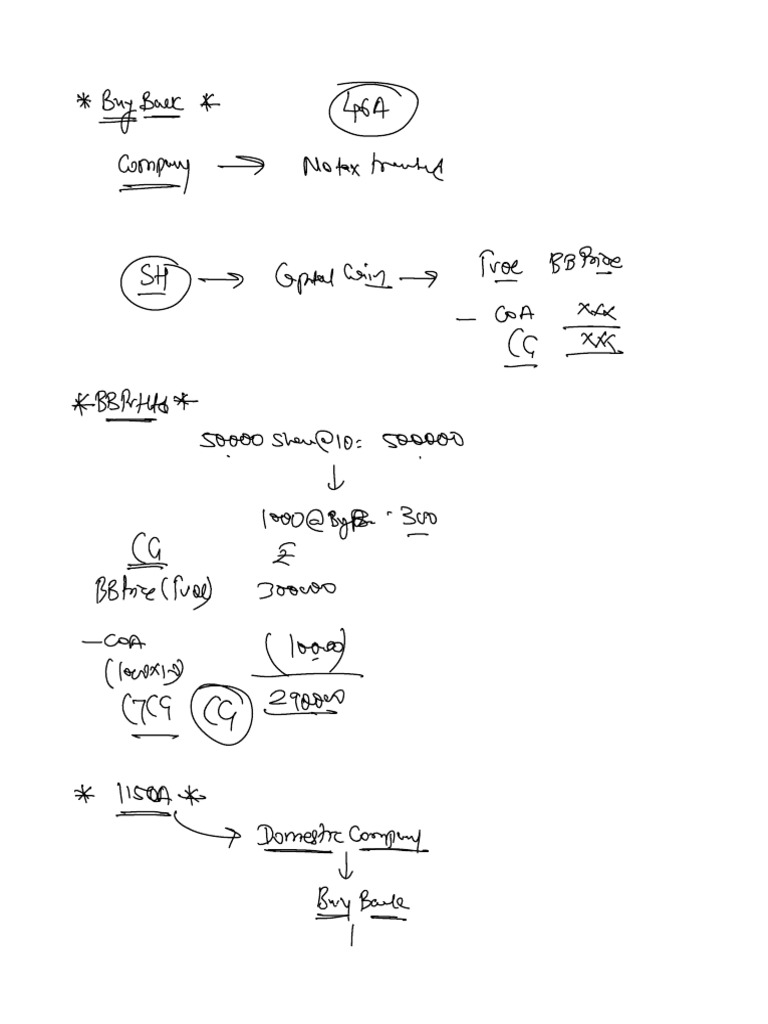 * Buy Back * 46A
Company → No tax treated
SH → Capital Gain → FVOC BB Price
- COA xxx
CG xxx
*
50000 Share @ 10 = 500000
↓
1000 @ 300
CG ₹
BB Price (FVOC) 300000
- COA (10000)
(1000x10)
CG 290000
* 115QA *
→ Domestic Company
↓
Buy Back